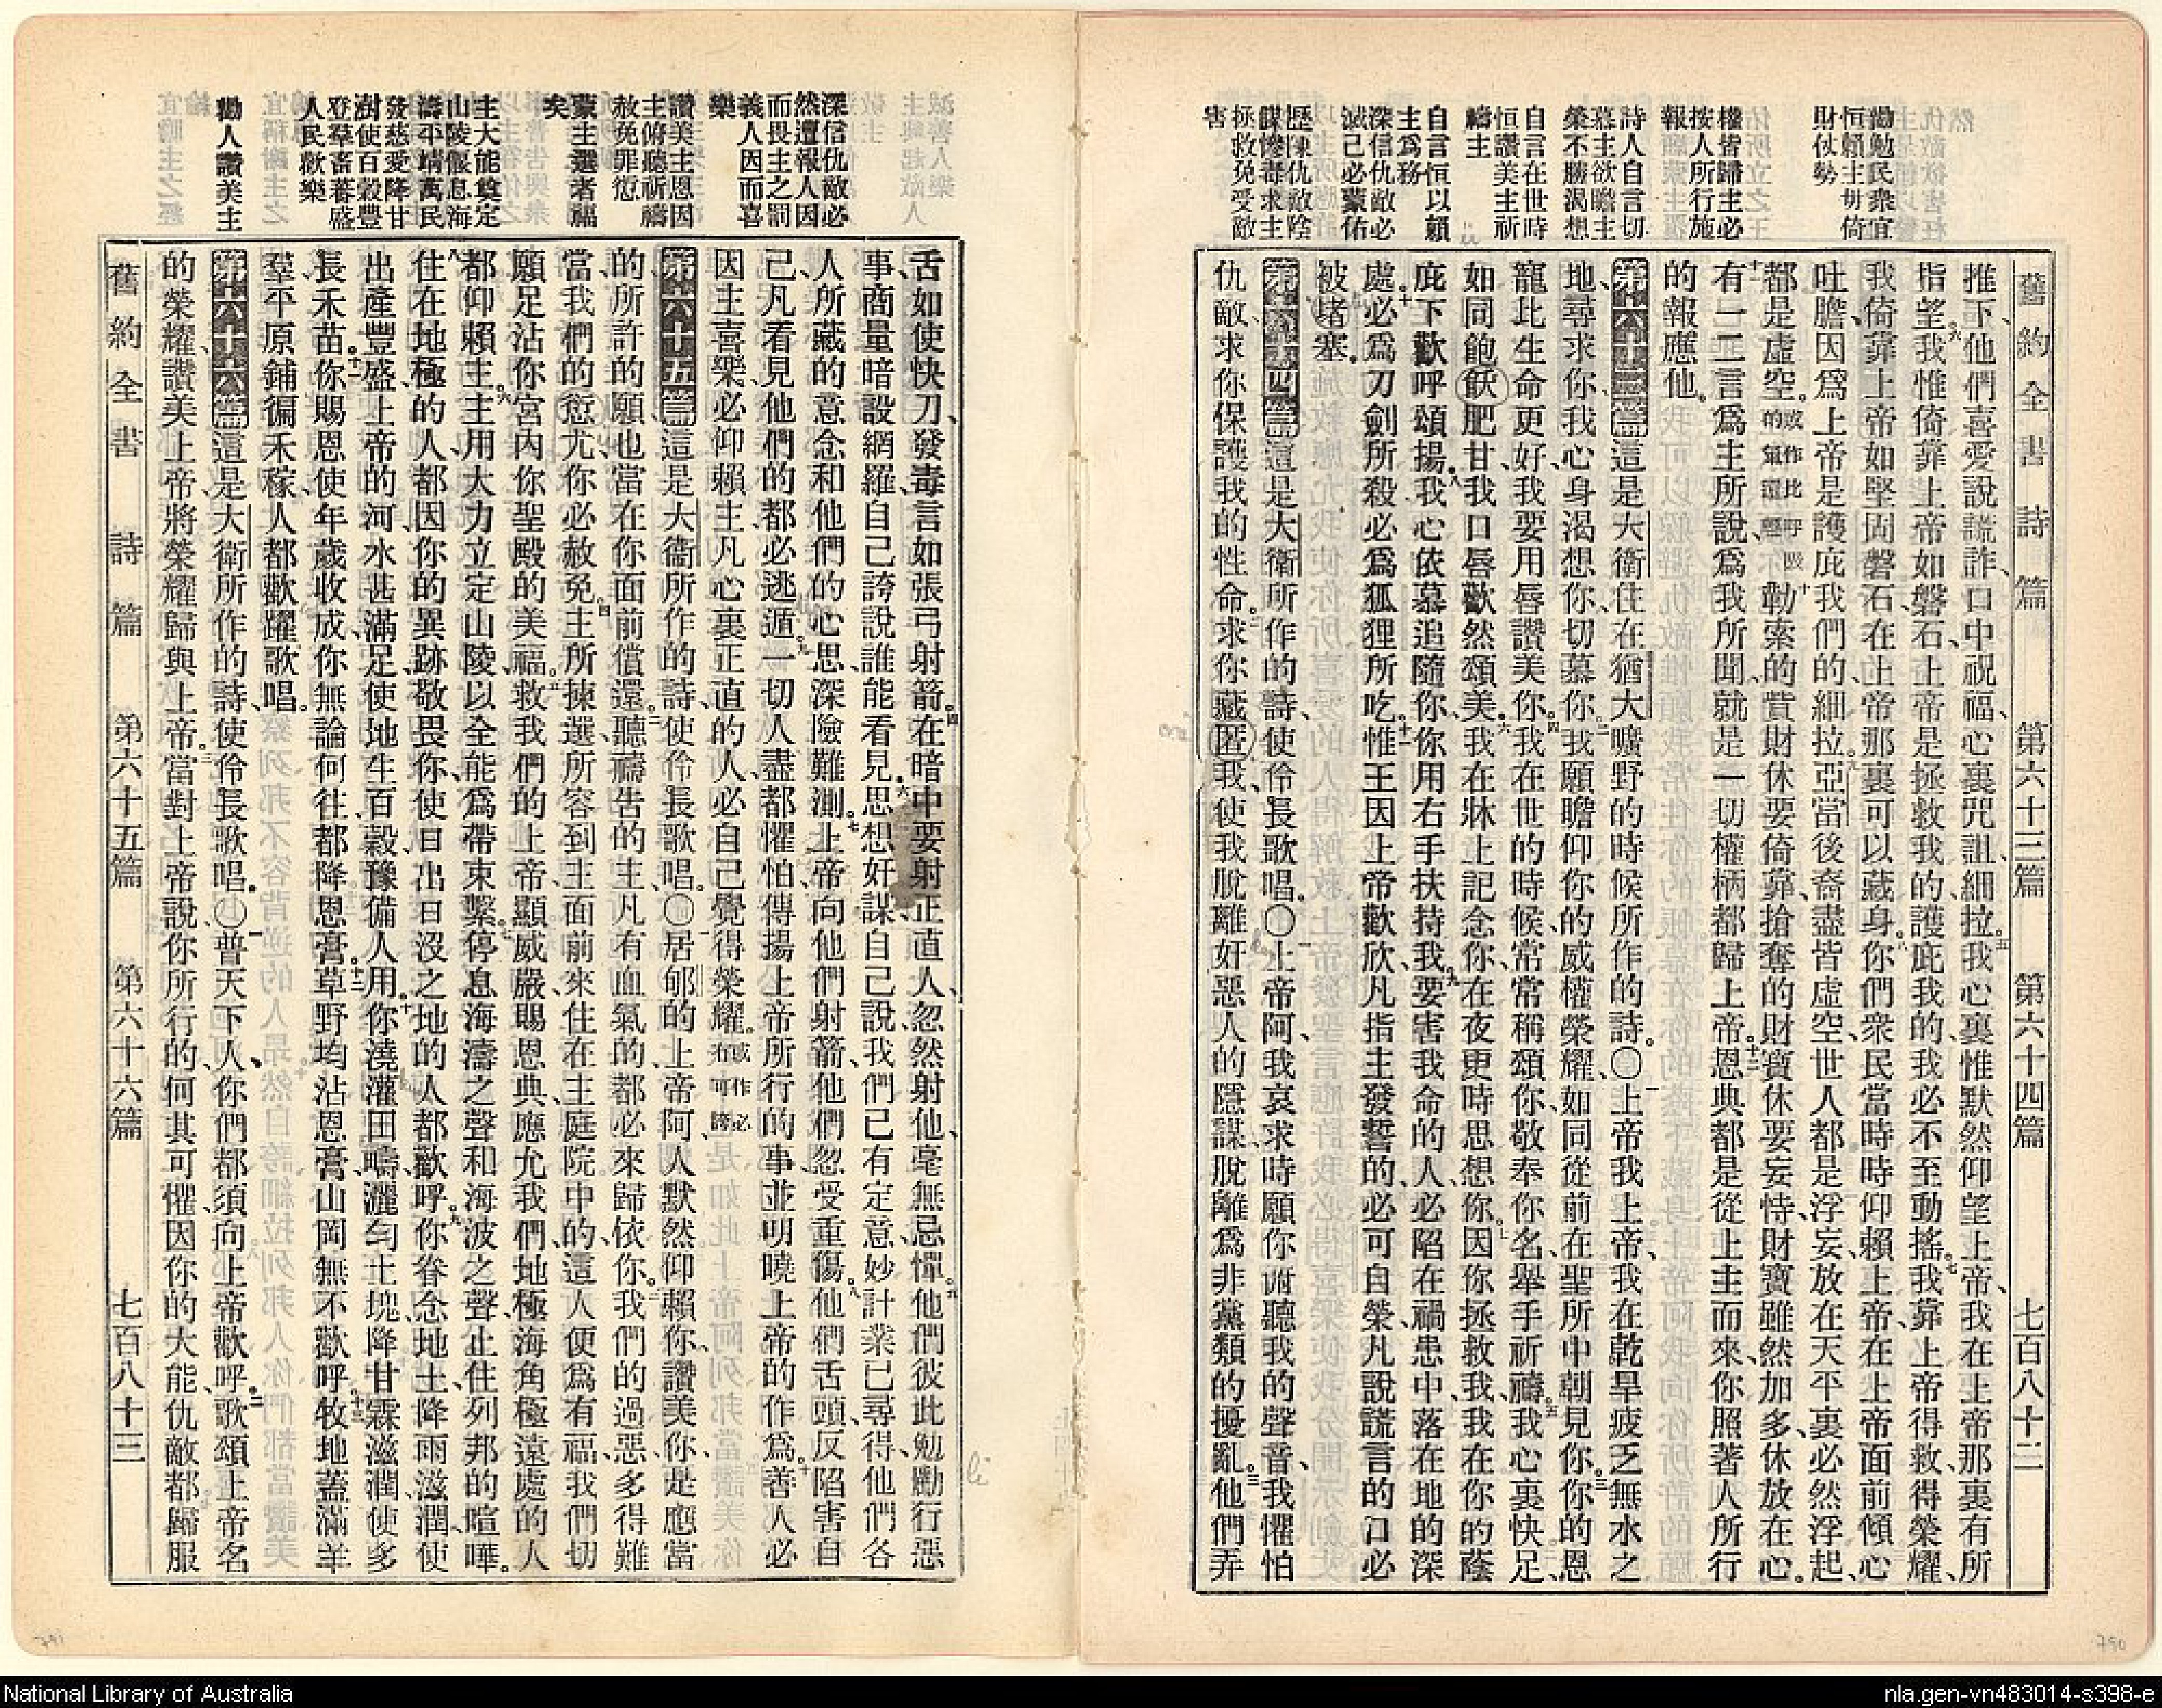 舊約全書 詩篇 第六十三篇 第六十四篇 七百八十二
勸勉民衆宜
恒賴主毋倚
財仗勢
權皆歸主必
按人所行施
報
詩人自言切
慕主欲瞻主
榮不勝渴想
自言在世時
恒讚美主祈
禱主
自言恒以賴
主爲務
深信仇敵必
滅己必蒙佑
歷陳仇敵陰
謀慘毒求主
拯救免受敵
害
推下、他們喜愛說謊詐、口中祝福、心裏咒詛、細拉。五我心裏惟默然仰望上帝、我在上帝那裏有所
指望。六我惟倚靠上帝如磐石、上帝是拯救我的、護庇我的、我必不至動搖。七我靠上帝得救得榮耀、
我倚靠上帝如堅固磐石、在上帝那裏可以藏身。八你們衆民當時時仰賴上帝、在上帝面前傾心
吐膽、因爲上帝是護庇我們的、細拉。九亞當後裔盡皆虛空、世人都是浮妄、放在天平裏必然浮起、
都是虛空。或作比呼吸的氣還輕十勒索的貲財休要倚靠、搶奪的財寶休要妄恃、財寶雖然加多、休放在心。
十一有一二言爲主所說、爲我所聞、就是一切權柄都歸上帝。十二恩典都是從上主而來、你照著人所行
的報應他。
第六十三篇這是大衛住在猶大曠野的時候所作的詩。〇一上帝我上帝、我在乾旱疲乏無水之
地、尋求你、我心身渴想你、切慕你。二我願瞻仰你的威權榮耀、如同從前在聖所中朝見你。三你的恩
寵比生命更好、我要用唇讚美你。四我在世的時候、常常稱頌你、敬奉你名、舉手祈禱。五我心裏快足、
如同飽飫肥甘、我口唇歡然頌美。六我在牀上記念你、在夜更時思想你。七因你拯救我、我在你的蔭
庇下歡呼頌揚。八我心依慕追隨你、你用右手扶持我。九要害我命的人、必陷在禍患中、落在地的深
處。十必爲刀劍所殺、必爲狐狸所吃。十一惟王因上帝歡欣、凡指主發誓的、必可自榮、凡說謊言的口必
被堵塞。
第六十四篇這是大衛所作的詩、使伶長歌唱。〇一上帝阿、我哀求時願你俯聽我的聲音、我懼怕
仇敵、求你保護我的性命。二求你藏匿我、使我脫離奸惡人的隱謀、脫離爲非黨類的擾亂。三他們弄
深信仇敵必
然遭報人因
而畏主之罰
義人因而喜
樂
讚美主恩因
主俯聽祈禱
赦免罪愆
蒙主選者福
矣
主大能奠定
山陵偃息海
濤平靖萬民
發慈愛降甘
澍使百穀豐
登羣畜蕃盛
人民歡樂
勸人讚美主
舌如使快刀、發毒言如張弓射箭。四在暗中要射正直人、忽然射他、毫無忌憚。五他們彼此勉勵行惡
事、商量暗設網羅、自己誇說誰能看見。六思想奸謀、自己說我們已有定意、妙計業已尋得、他們各
人所藏的意念、和他們的心思、深險難測。七上帝向他們射箭、他們忽受重傷。八他們舌頭反陷害自
己、凡看見他們的都必逃遁。九一切人盡都懼怕、傳揚上帝所行的事、並明曉上帝的作爲。十善人必
因主喜樂、必仰賴主、凡心裏正直的人、必自己覺得榮耀。或作必有可誇
第六十五篇這是大衛所作的詩、使伶長歌唱。〇一居郇的上帝阿、人默然仰賴你、讚美你、是應當
的、所許的願也當在你面前償還。二聽禱告的主、凡有血氣的都必來歸依你。三我們的過惡、多得難
當、我們的愆尤、你必赦免。四主所揀選所容到主面前來、住在主庭院中的、這人便爲有福、我們切
願足沾你宮內、你聖殿的美福。五救我們的上帝、顯威嚴、賜恩典、應允我們、地極海角極遠處的人
都仰賴主。六主用大力立定山陵、以全能爲帶束繫。七停息海濤之聲、和海波之聲、止住列邦的喧嘩。
八住在地極的人、都因你的異跡、敬畏你、使日出日沒之地的人、都歡呼。九你眷念地土、降雨滋潤、使
出產豐盛、上帝的河、水甚滿足、使地生百穀、豫備人用。十你澆灌田疇、灑勻土塊、降甘霖滋潤、使多
長禾苗。十一你賜恩使年歲收成、你無論何往都降恩膏。十二草野均沾恩膏、山岡無不歡呼。十三牧地蓋滿羊
羣、平原鋪徧禾稼、人都歡躍歌唱。
第六十六篇這是大衛所作的詩、使伶長歌唱。〇一普天下人、你們都須向上帝歡呼。二歌頌上帝名
的榮耀、讚美上帝、將榮耀歸與上帝。三當對上帝說、你所行的何其可懼、因你的大能、仇敵都歸服
舊約全書 詩篇 第六十五篇 第六十六篇 七百八十三
790
791
National Library of Australia
nla.gen-vn483014-s398-e